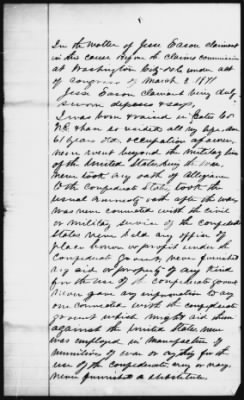 In the matter of Jesse Eason claimant
in this cause before the claims commissioners
at Washington City D.C. under act
of congress of March 3 1871
Jesse Eason claimant being duly
sworn deposes & says,
I was born & raised in Gates Co
N.C. & have so resided all my life. Am
61 years old, occupation a farmer,
never went beyond the military lines
of the United States during the war
Never took any oath of Allegiance
to the Confederate States, took the
usual Amnesty oath after the war
was never connected with the civil
or military service of the Confederate
States never held any office of
place honor or profit under the
Confederate Gov'ment, never furnished
any aid or property of any kind
for the use of the confederate gov'ment
Never gave any information to any
one connected with the confederate
gov'ment which might aid them
against the United States, never
was employed in Manufacture of
munitions of war or anything for the
use of the confederate army or navy.
Never furnished a substitute.